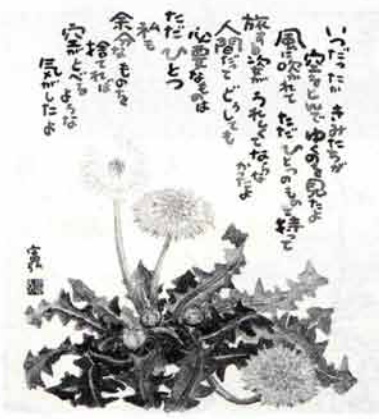 いつだったか きみたちが
空をとんで ゆくのを見たよ
風に吹かれて ただ ひとつのものを持って
旅する姿が うれしくてならなかったよ
人間だって どうしても
必要なものは
ただ ひとつ
私も
余分なものを
捨てれば
空がとべる ような
気がしたよ
富弘